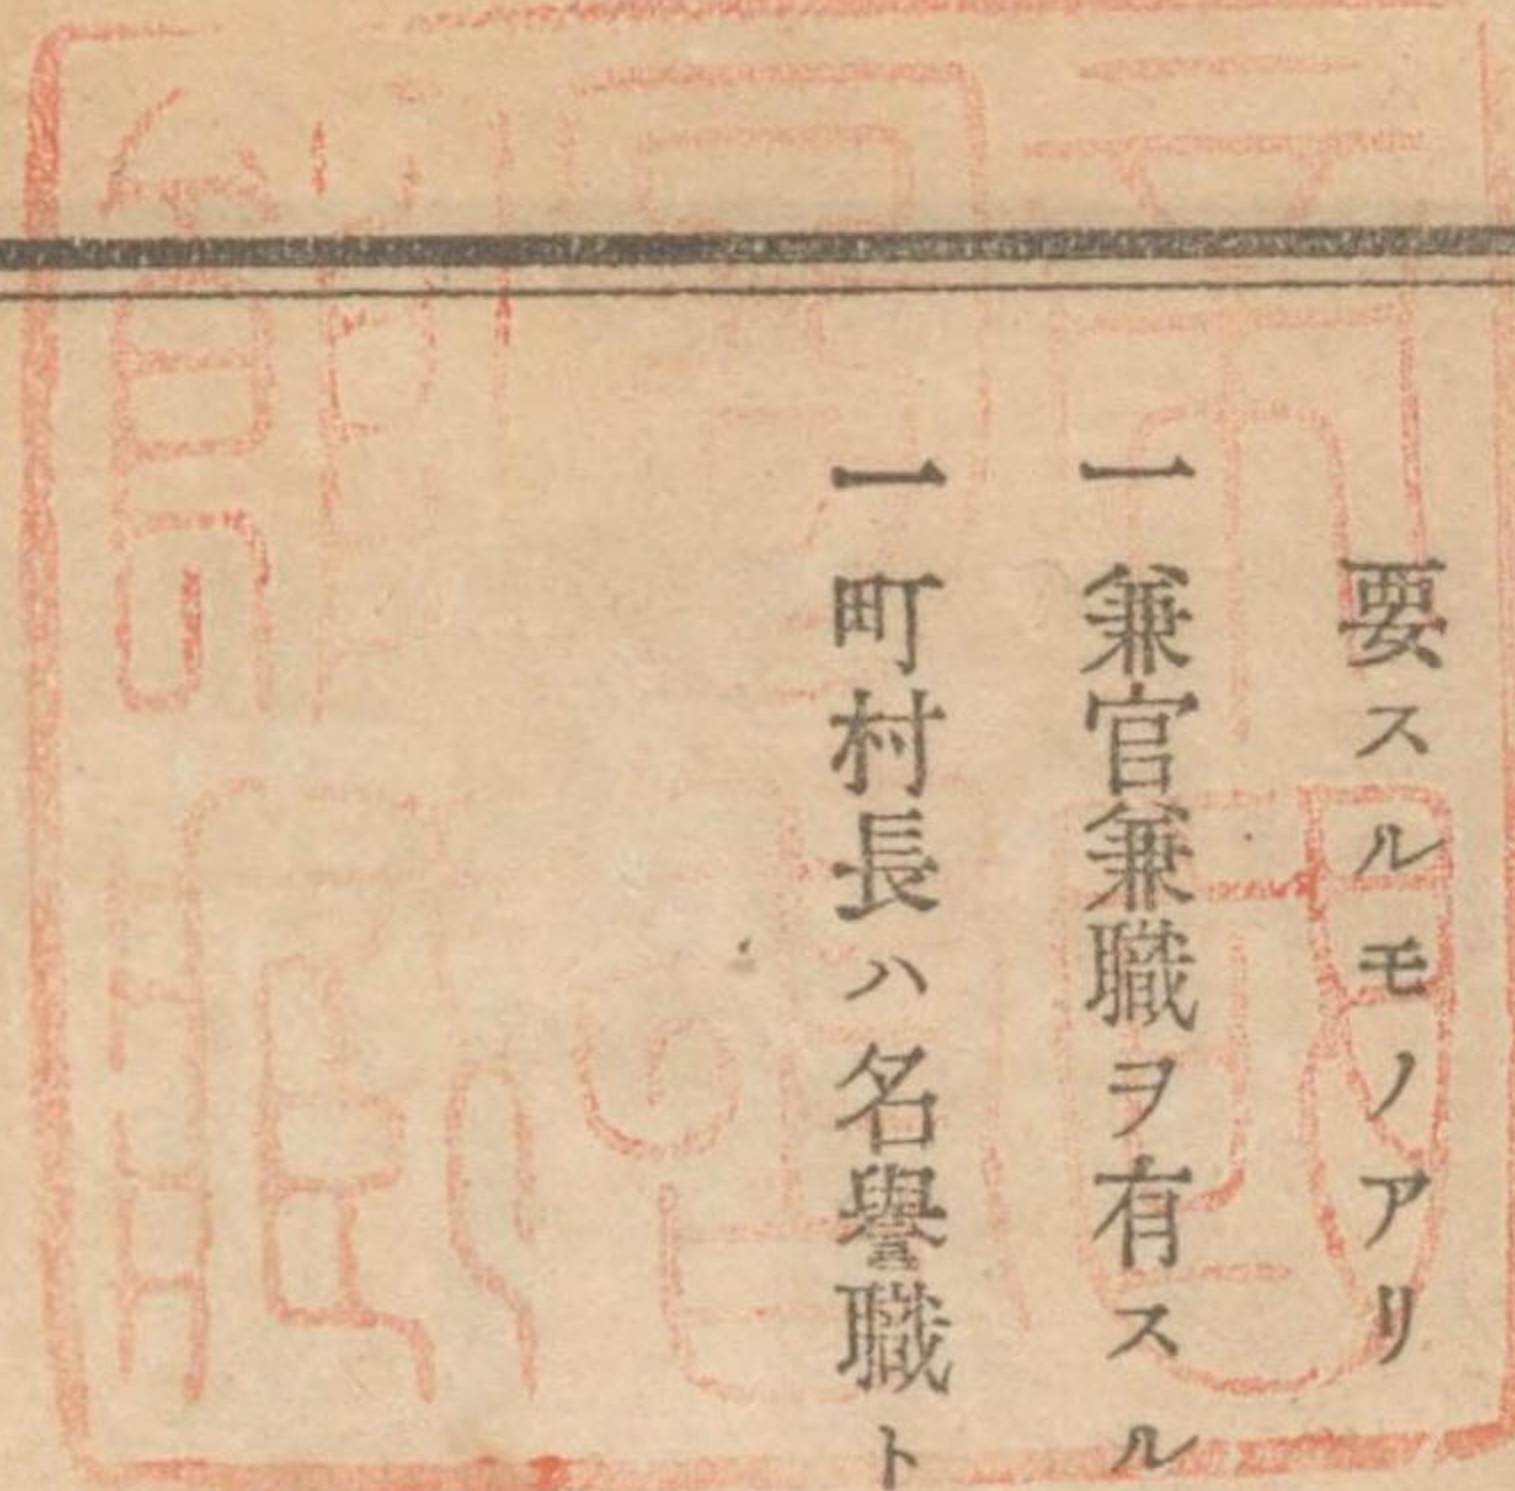 要スルモノアリ
一兼官兼職ヲ有スル
一町村長ハ名譽職ト